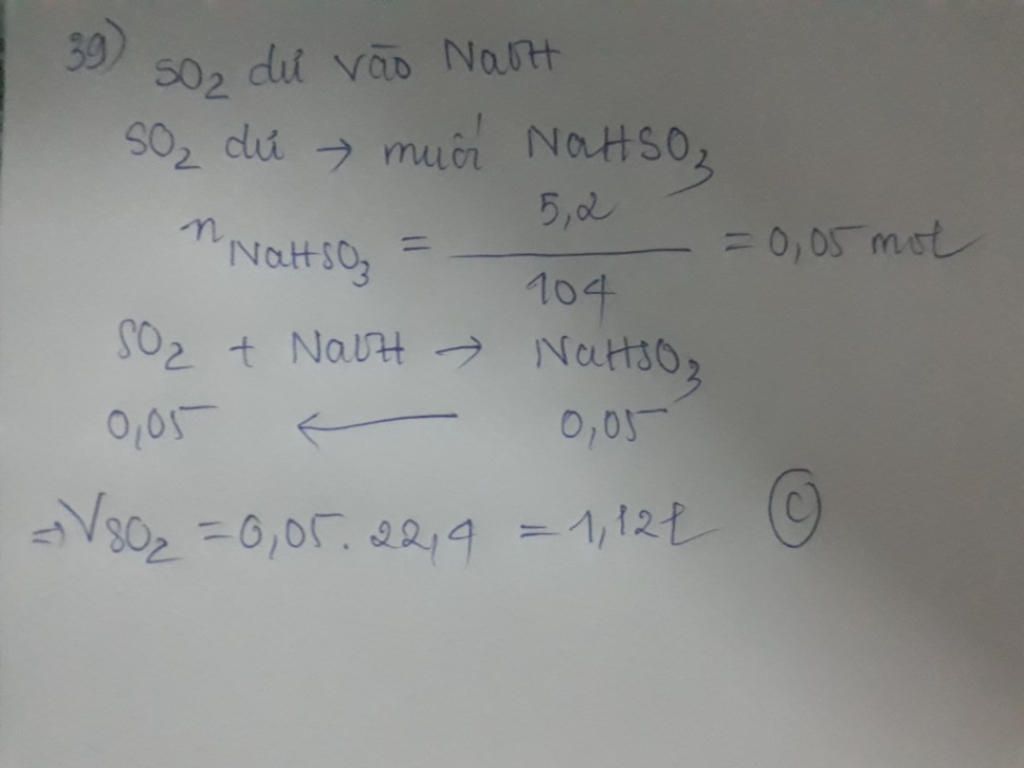 39) SO2 dư vào NaOH
SO2 dư → muối NaHSO3
n NaHSO3 = 5,2 / 104 = 0,05 mol
SO2 + NaOH → NaHSO3
0,05 ← 0,05
⇒ VSO2 = 0,05. 22,4 = 1,12l Ⓒ